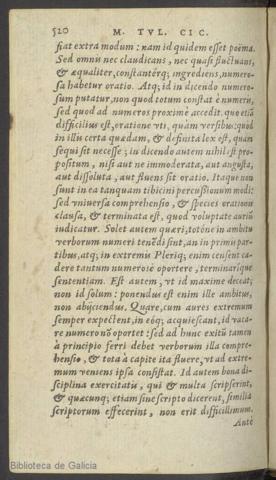 520 M. TVL. CIC.
fiat extra modum: nam id quidem esset poëma.
Sed omnis nec claudicans, nec quasi fluctuans,
& æqualiter, constanterq; ingrediens, numero-
sa habetur oratio. Atq; id in dicendo numero-
sum putatur, non quod totum constat è numeris,
sed quod ad numeros proximè accedit. quo etiã
difficilius est, oratione vti, quàm versibus: quòd
in illis certa quædam, & definita lex est, quam
sequi sit necesse: in dicendo autem nihil est pro-
positum, nisi aut ne immoderata, aut angusta,
aut dissoluta, aut fluens sit oratio. Itaque non
sunt in ea tanquam tibicini percussionum modi:
sed vniuersa comprehensio, & species orationis
clausa, & terminata est, quod voluptate auriũ
iudicatur. Solet autem quæri, totóne in ambitu
verborum numeri tenẽdi sint, an in primis par-
tibus, atq; in extremis. Pleriq; enim censent ca-
dere tantum numerosè oportere, terminarique
sententiam. Est autem, vt id maximè deceat,
non id solum: ponendus est enim ille ambitus,
non abijciendus. Quare, cum aures extremum
semper expectent, in eóq; acquiescant, id vaca-
re numero nõ oportet: sed ad hunc exitũ tamen
à principio ferri debet verborum illa compre-
hensio, & tota à capite ita fluere, vt ad extre-
mum veniens ipsa consistat. Id autem bona di-
sciplina exercitatis, qui & multa scripserint,
& quæcunq; etiam sine scripto dicerent, similia
scriptorum effecerint, non erit difficillimum.
Antè
Biblioteca de Galicia